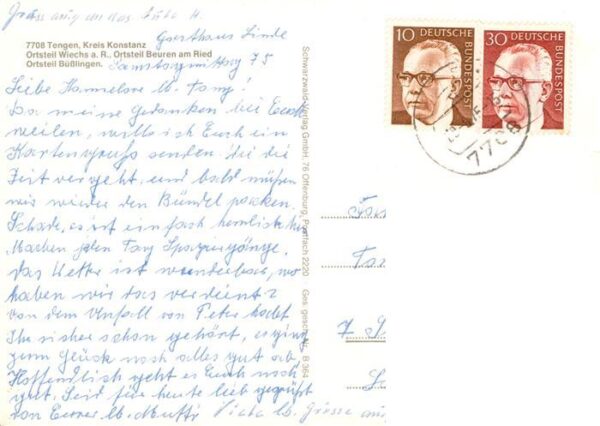 Grüsse auch an das
Gasthaus Linde
7708 Tengen, Kreis Konstanz
Ortsteil Wiechs a. R., Ortsteil Beuren am Ried
Ortsteil Büßlingen.
Samstagmittag 75
Liebe Hannelore u. Tony!
Da meine Gedanken bei Euch
weilen, will ich Euch ein
Kartengruss senden. Die
Zeit vergeht und bald müssen
wir wieder den Bündel packen.
Schade, es ist einfach herrlich hier
Machen jeden Tag Spaziergänge.
das Wetter ist wunderbar, wo
haben wir das verdient?
von dem Unfall von Peter habt
Ihr sicher schon gehört, es ging
zum Glück noch alles gut ab.
Hoffentlich geht es Euch noch
gut. Seid für heute lieb gegrüsst
von Eurer lb. Mutti Viele lb. Grüsse
Schwarzwald-Verlag GmbH, 76 Offenburg, Postfach 2220 Ges. gesch. Nr. B 364
10 DEUTSCHE BUNDESPOST
30 DEUTSCHE BUNDESPOST
7708
7